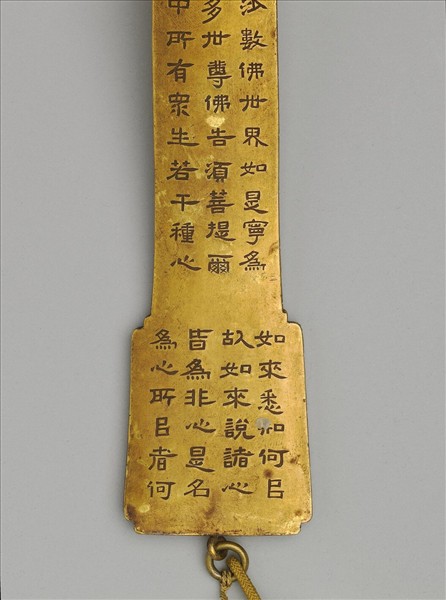 沙數佛世界如是寧為
多世尊佛告須菩提爾
中所有衆生若干種心
如來悉知何㠯
故如來說諸心
皆為非心是名
為心所㠯者何